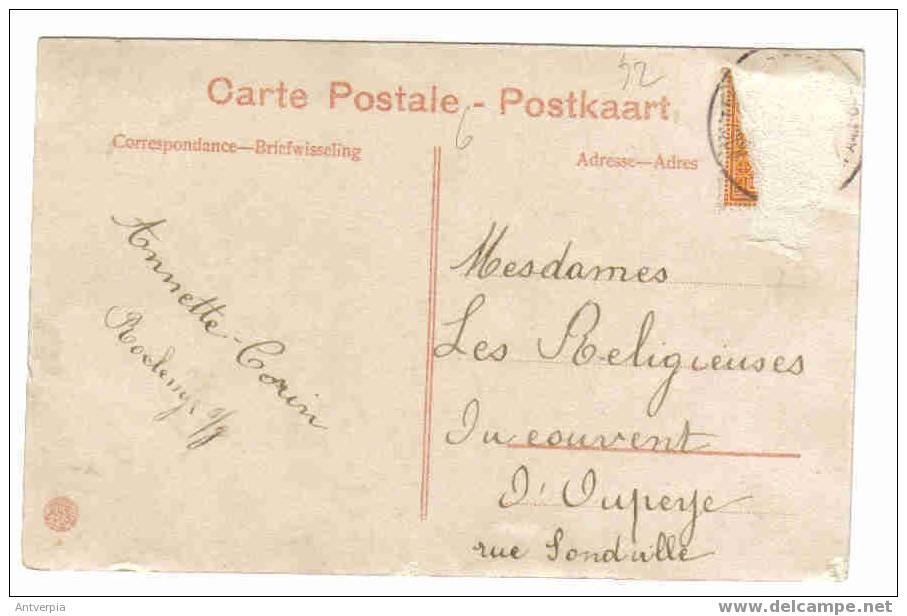 52
Carte Postale - Postkaart
6
Correspondance—Briefwisseling
Adresse—Adres
Annette-Corin
Mesdames
Les Religieuses
Du couvent
D'Oupeye
rue
Antverpia
www.delcampe.net